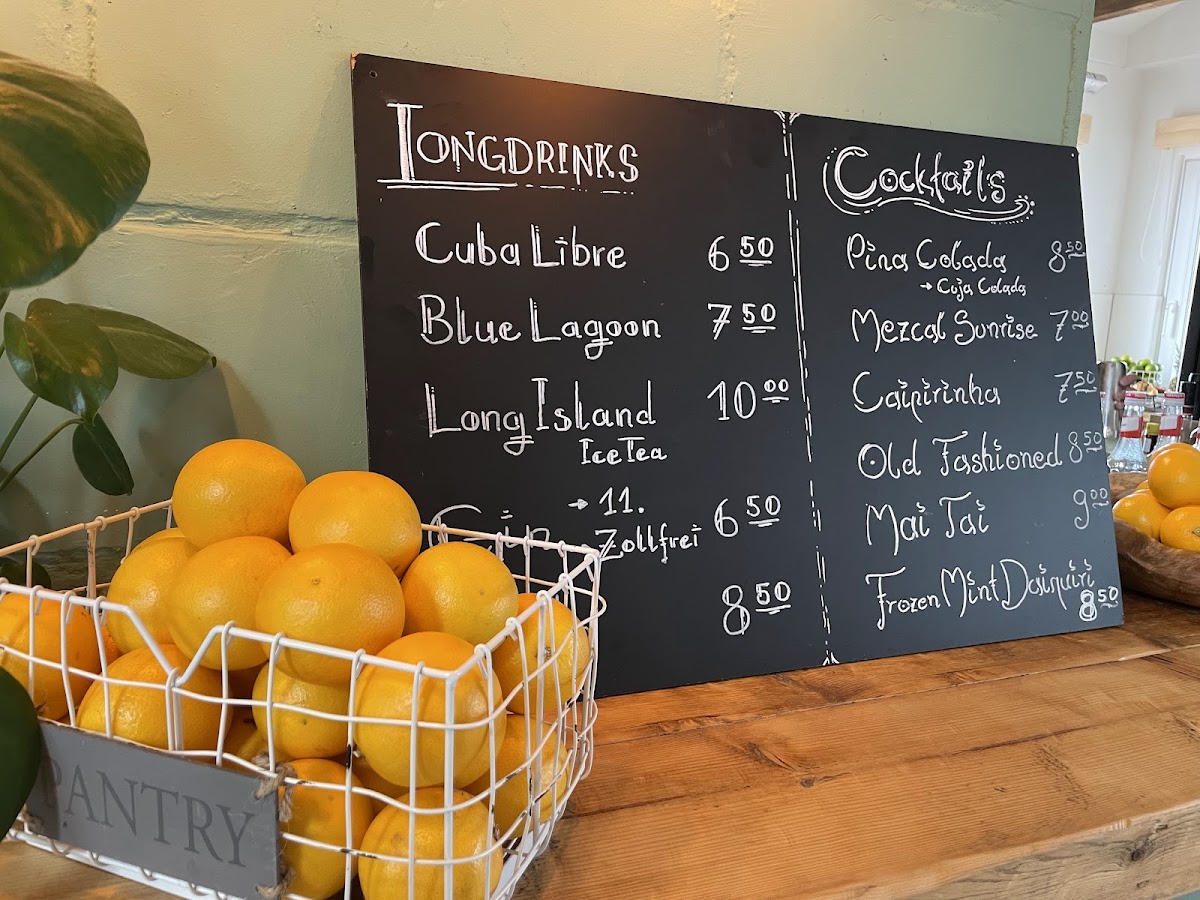 LONGDRINKS
Cuba Libre 6 50
Blue Lagoon 7 50
Long Island 10 00
Ice Tea
Gin → 11. 6 50
Zollfrei
8 50
Cocktails
Pina Colada 8 50
→ Coja Colada
Mezcal Sunrise 7 00
Caipirinha 7 50
Old Fashioned 8 50
Mai Tai 9 00
Frozen Mint Daiquiri
8 50
PANTRY